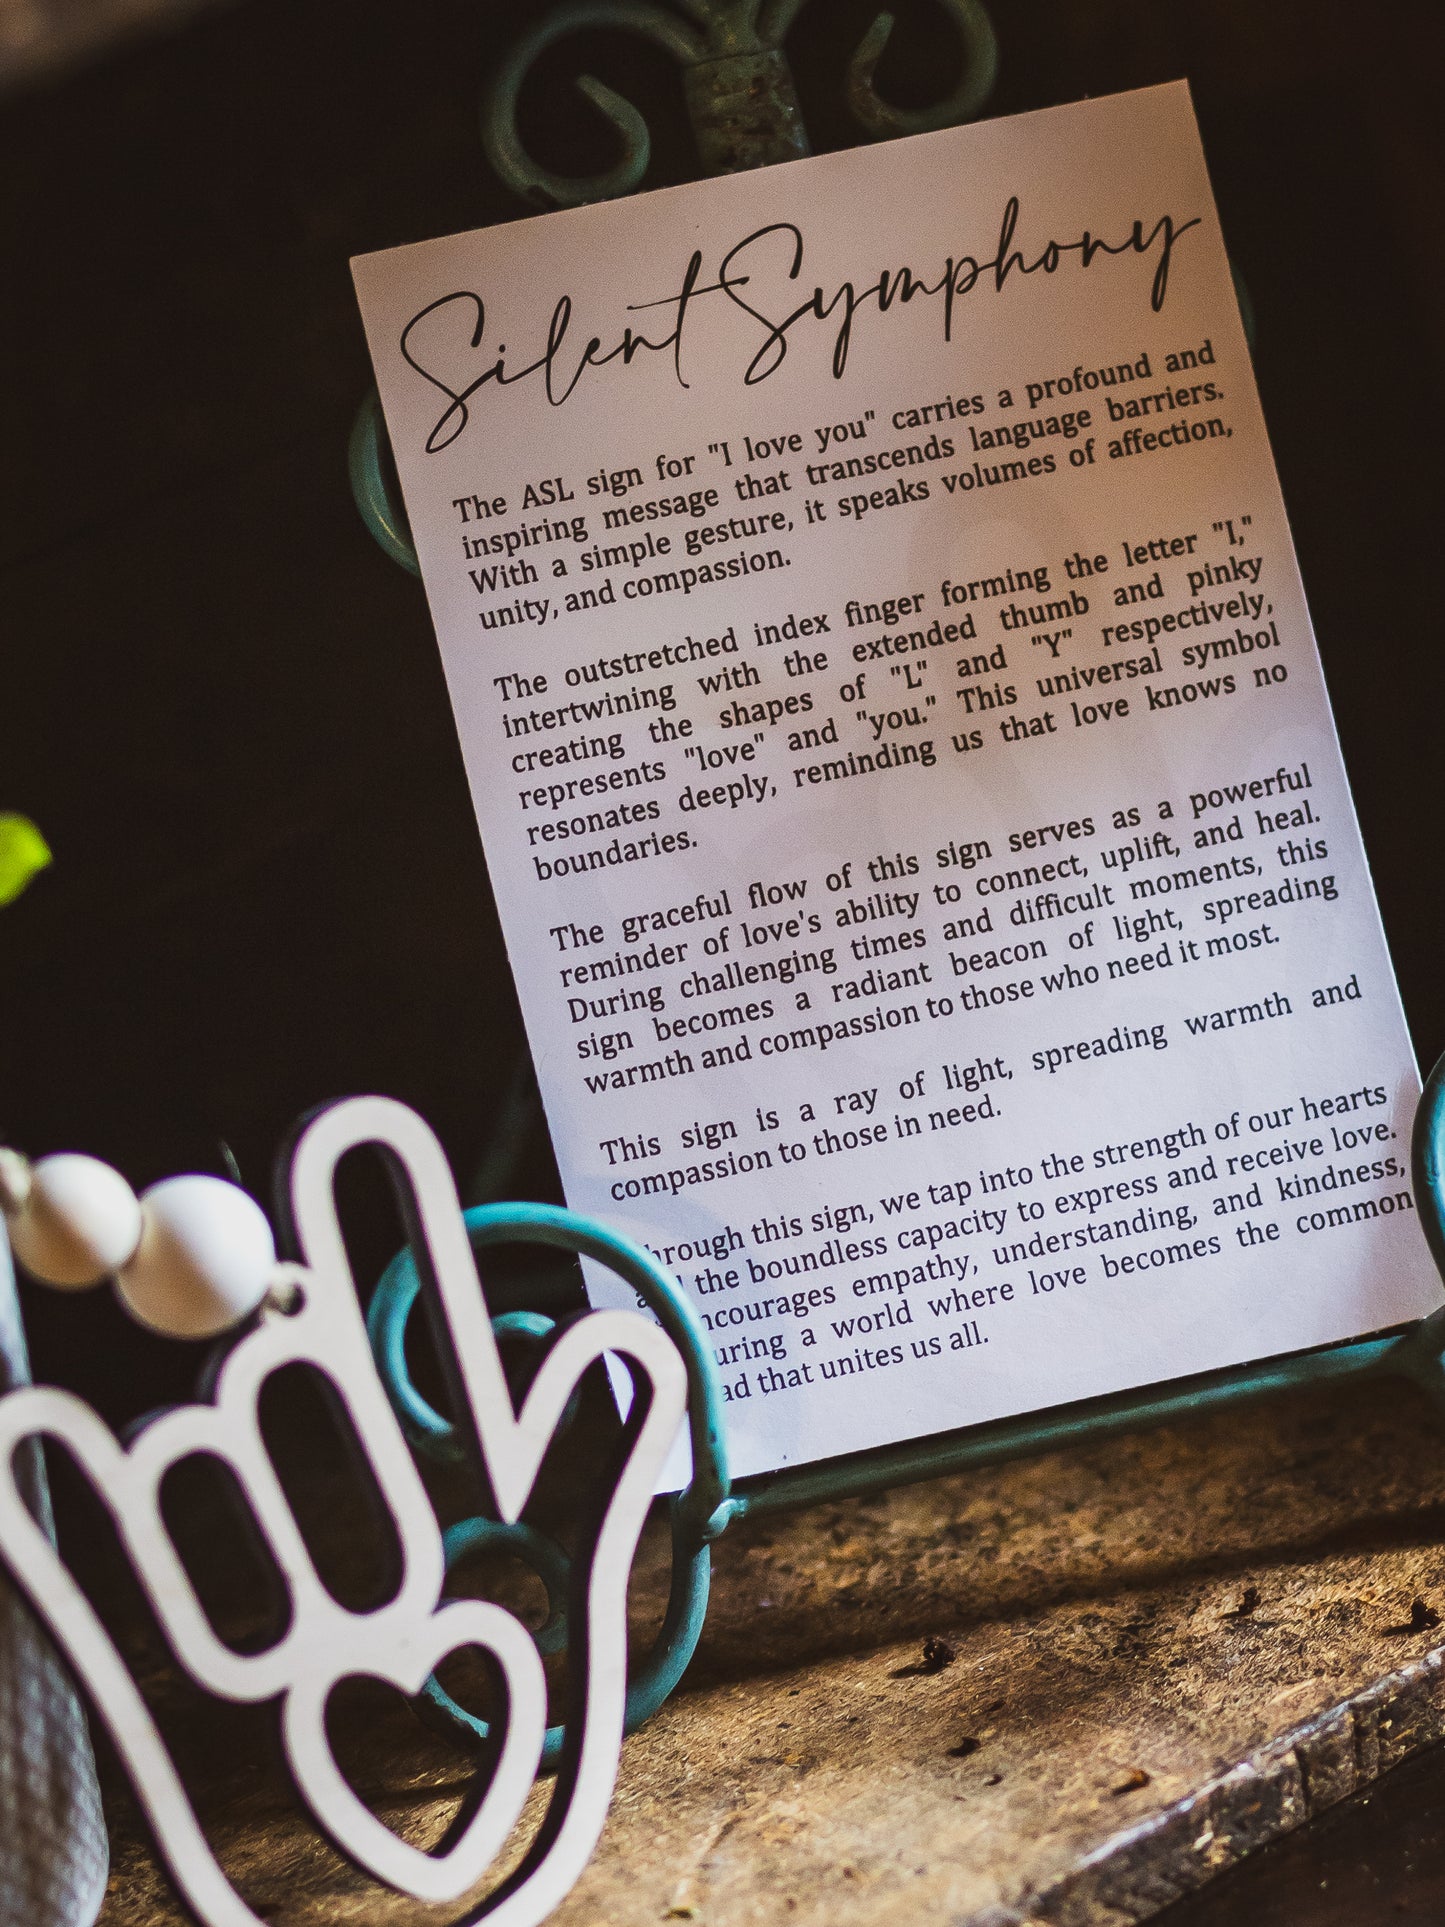 Silent Symphony
The ASL sign for "I love you" carries a profound and
inspiring message that transcends language barriers.
With a simple gesture, it speaks volumes of affection,
unity, and compassion.
The outstretched index finger forming the letter "I,"
intertwining with the extended thumb and pinky
creating the shapes of "L" and "Y" respectively,
represents "love" and "you." This universal symbol
resonates deeply, reminding us that love knows no
boundaries.
The graceful flow of this sign serves as a powerful
reminder of love's ability to connect, uplift, and heal.
During challenging times and difficult moments, this
sign becomes a radiant beacon of light, spreading
warmth and compassion to those who need it most.
This sign is a ray of light, spreading warmth and
compassion to those in need.
hrough this sign, we tap into the strength of our hearts
the boundless capacity to express and receive love.
ncourages empathy, understanding, and kindness,
uring a world where love becomes the common
ad that unites us all.